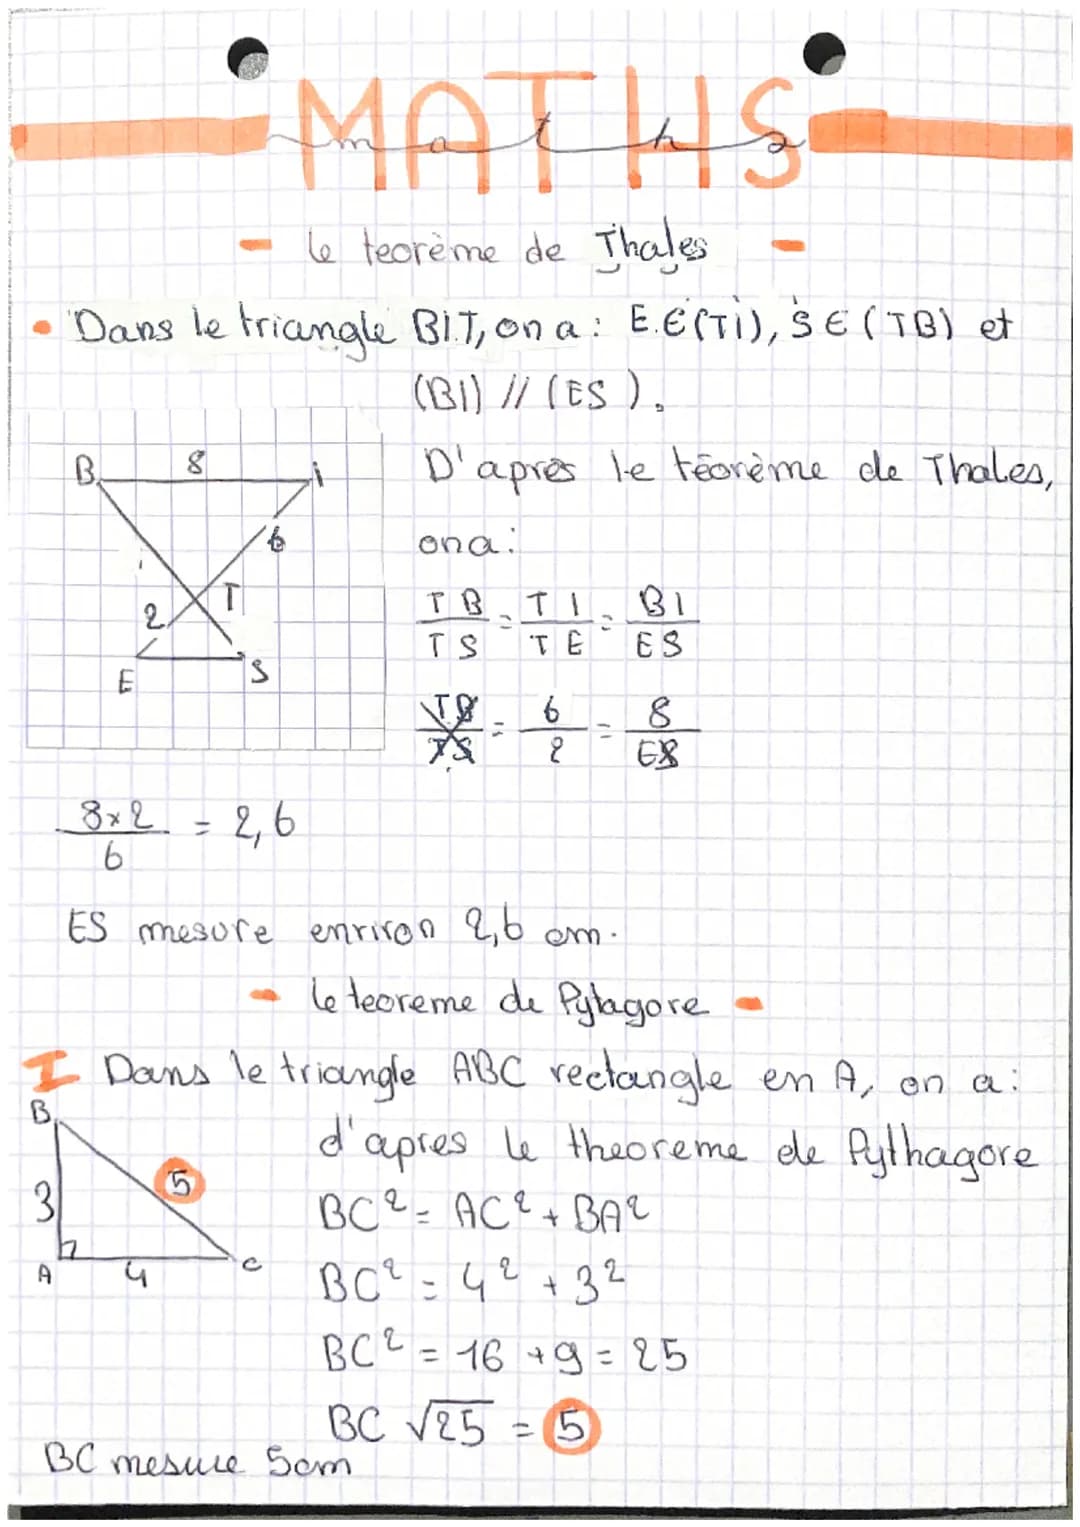 MATHS
maths
- le teorème de Thales -
• Dans le triangle BIT, on a : E.E(Ti), S E (TB) et
(BI) // (ES).
B 8 i
6
T
2
E S
D'après le téorème de Thales,
on a :
TB/TS = TI/TE = BI/ES
TB/TS = 6/2 = 8/ES
8x2/6 = 2,6
ES mesure enriron 2,6 cm.
- le teoreme de Pytagore -
I Dans le triangle ABC rectangle en A, on a :
B
3
5
A 4 C
d'apres le theoreme de Pythagore
BC² = AC² + BA²
BC² = 4² + 3²
BC² = 16 + 9 = 25
BC √25 = 5
BC mesure 5cm